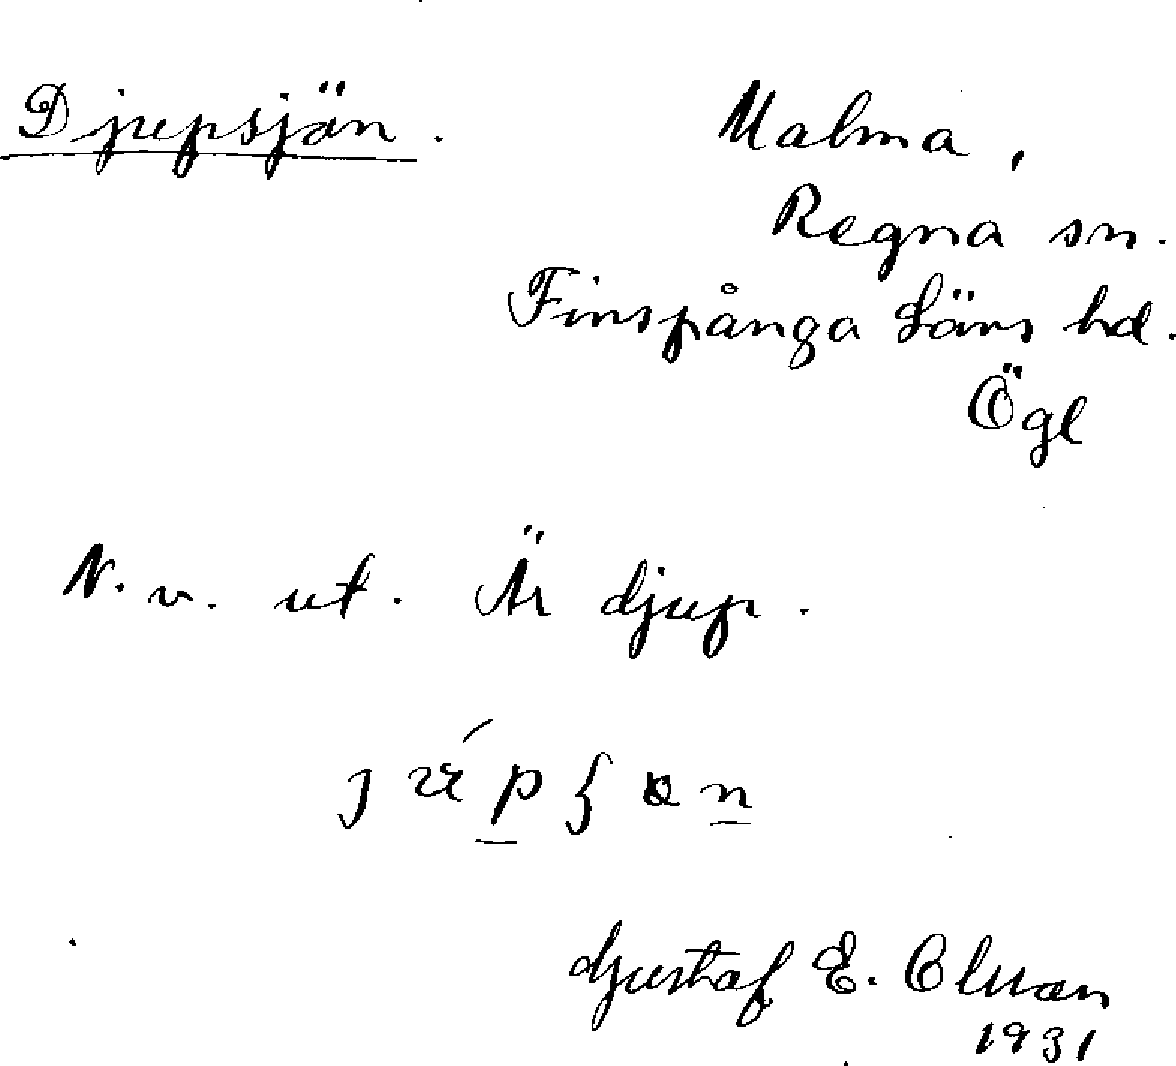 Djupsjön.
Malma,
Regna sn.
Finspånga Läns hd.
Ögl
N. v. ut. Är djup.
Gustaf E. Olsson
1931